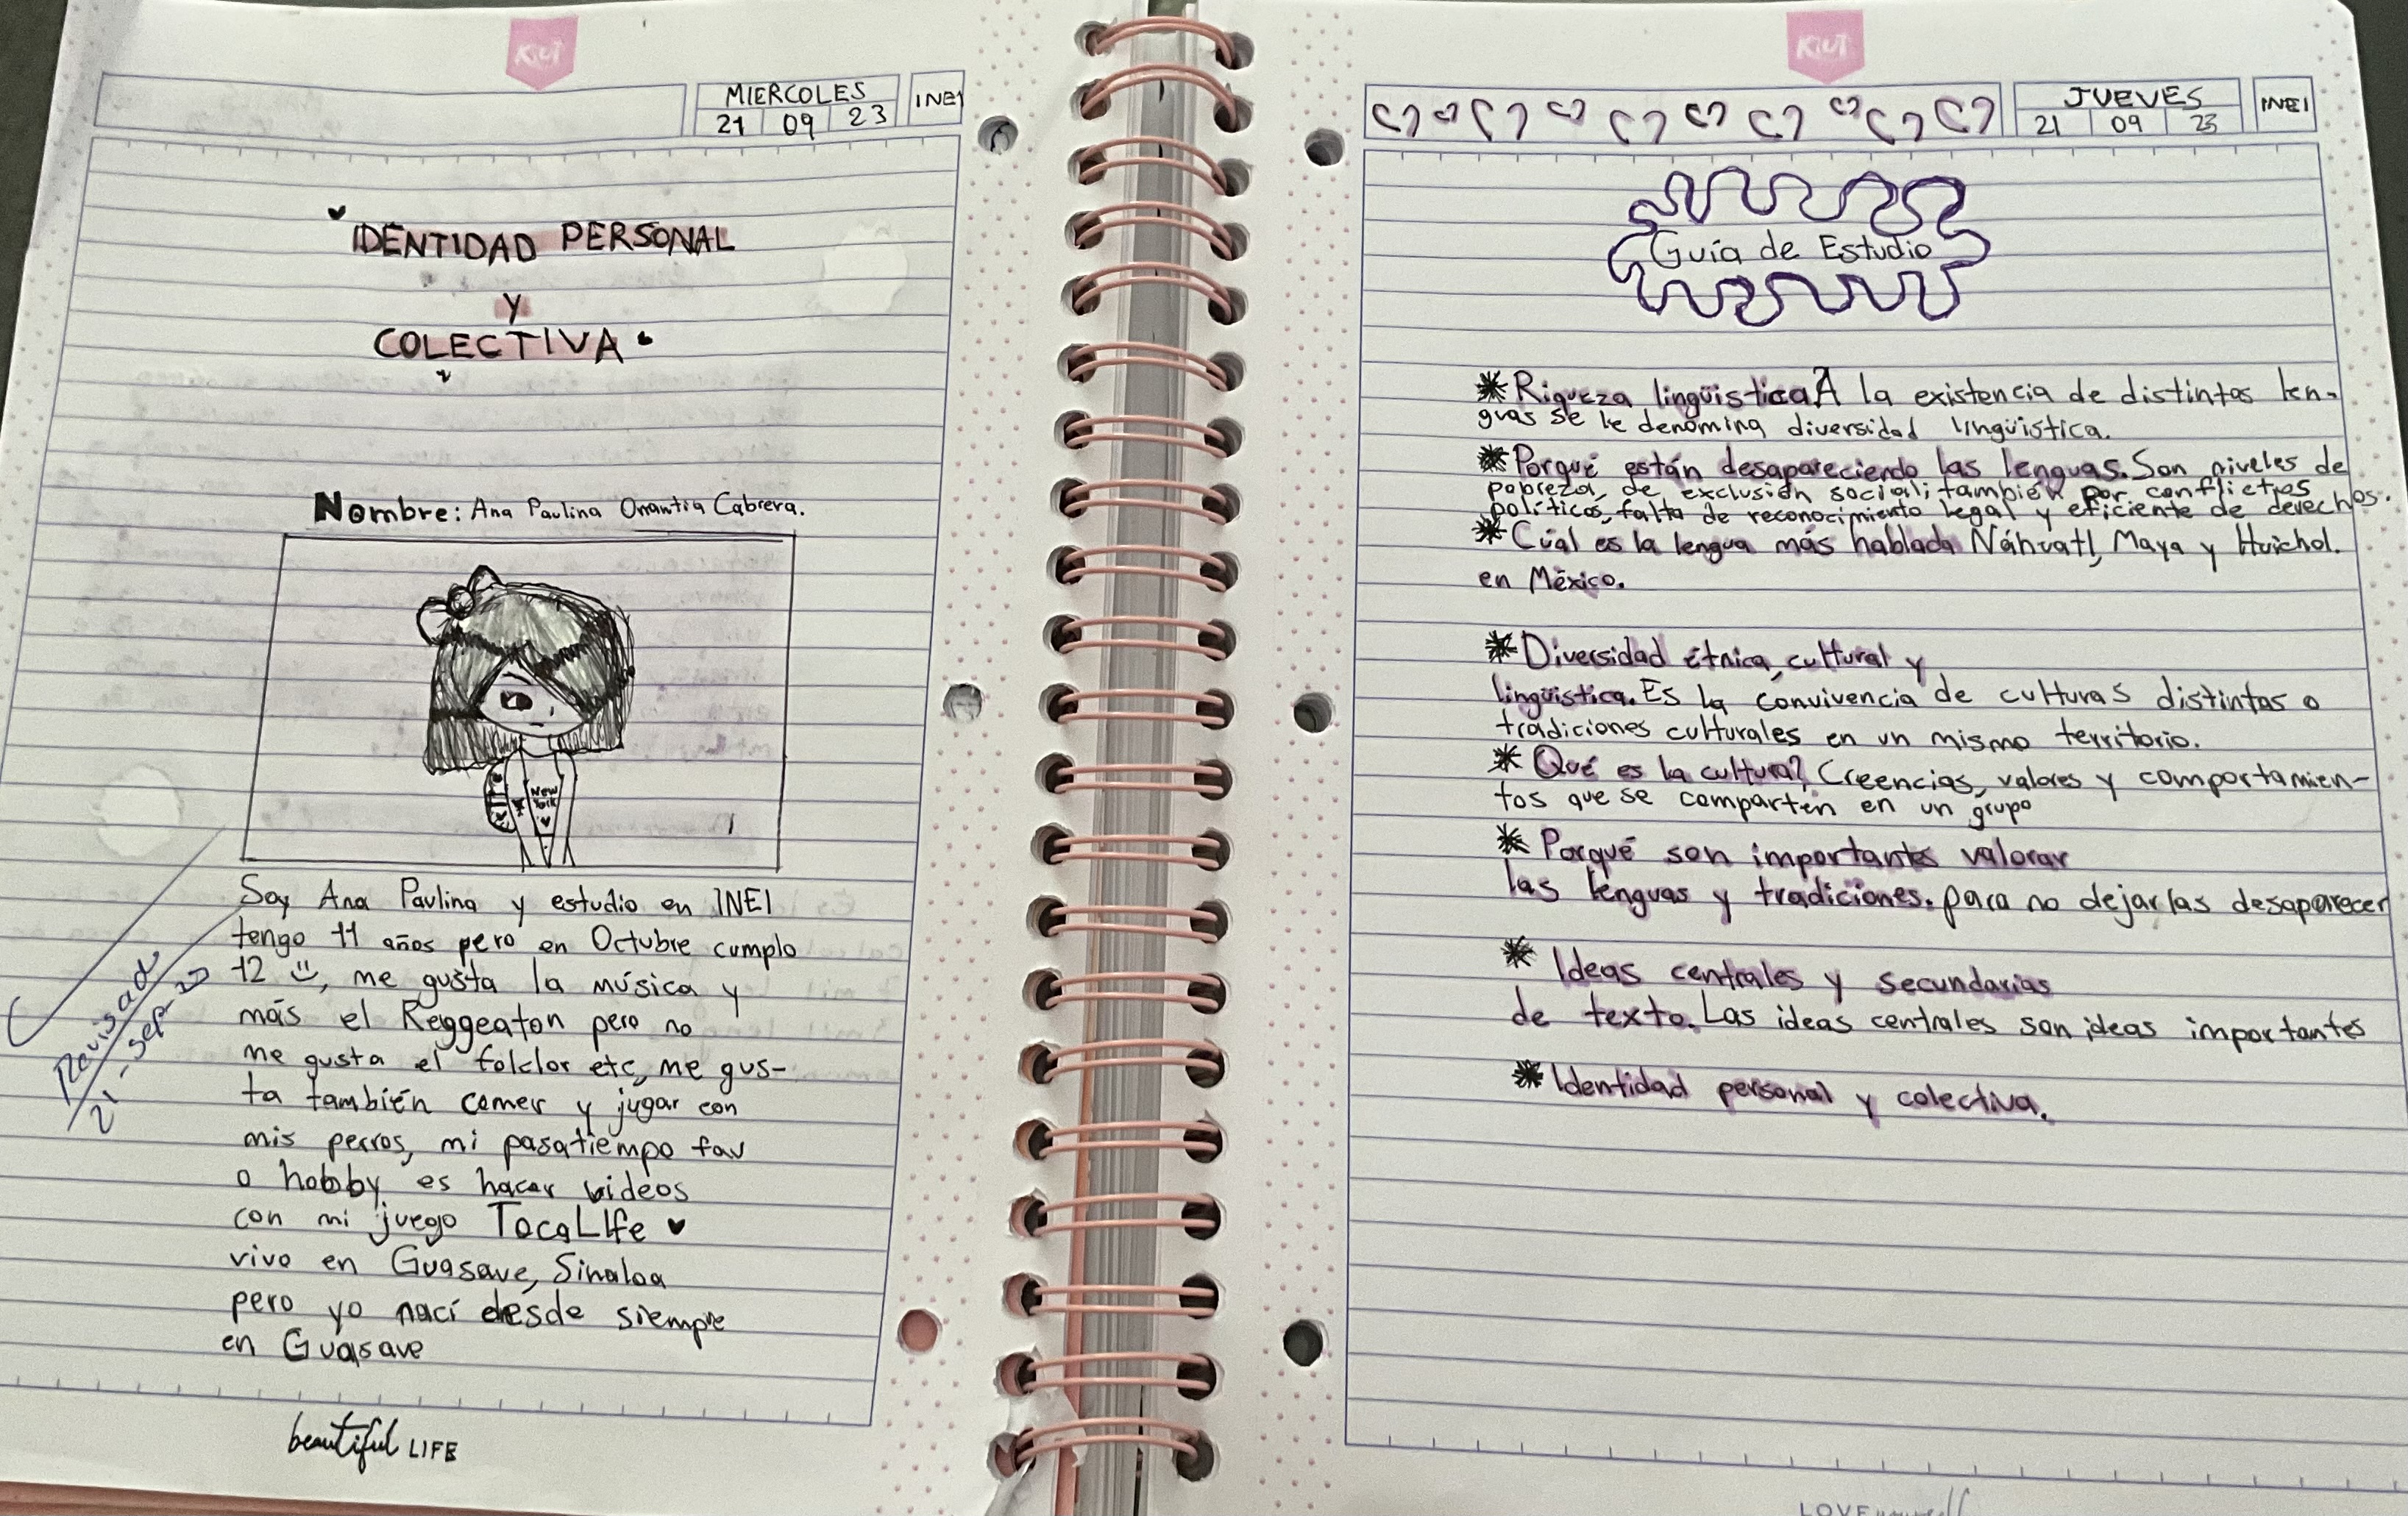 KiUT
MIERCOLES
21 09 23
INEI
IDENTIDAD PERSONAL
Y
COLECTIVA
Nombre: Ana Paulina Onantia Cabrera.
New
York
Soy Ana Paulina y estudio en INEI
tengo 11 años pero en Octubre cumplo
12 , me gusta la música y
más el Reggeaton pero no
me gusta el folclor etc, me gus-
ta también comer y jugar con
mis perros, mi pasatiempo fav
o hobby es hacer videos
con mi juego TocaLIfe ♥
vivo en Guasave, Sinaloa
pero yo nací desde siempre
en Guasave
Revisado
21-sep-23
beautiful LIFE
KiUT
JUEVES
21 09 23
INEI
Guía de Estudio
*Riqueza lingüistica? A la existencia de distintas len-
guas se le denomina diversidad lingüistica.
*Porqué están desapareciendo las lenguas. Son niveles de
pobreza, de exclusión social; también por conflictos
políticos, falta de reconocimiento legal y eficiente de derechos.
*Cúal es la lengua más hablada Náhuatl, Maya y Huichol.
en México.
*Diversidad étnica, cultural y
lingüistica. Es la convivencia de culturas distintas o
tradiciones culturales en un mismo territorio.
* Qué es la cultura? Creencias, valores y comportamien-
tos que se comparten en un grupo
* Porqué son importantes valorar
las lenguas y tradiciones. para no dejarlas desaparecer
* Ideas centrales y secundarias
de texto. Las ideas centrales son ideas importantes
*Identidad personal y colectiva.
LOVE yourself